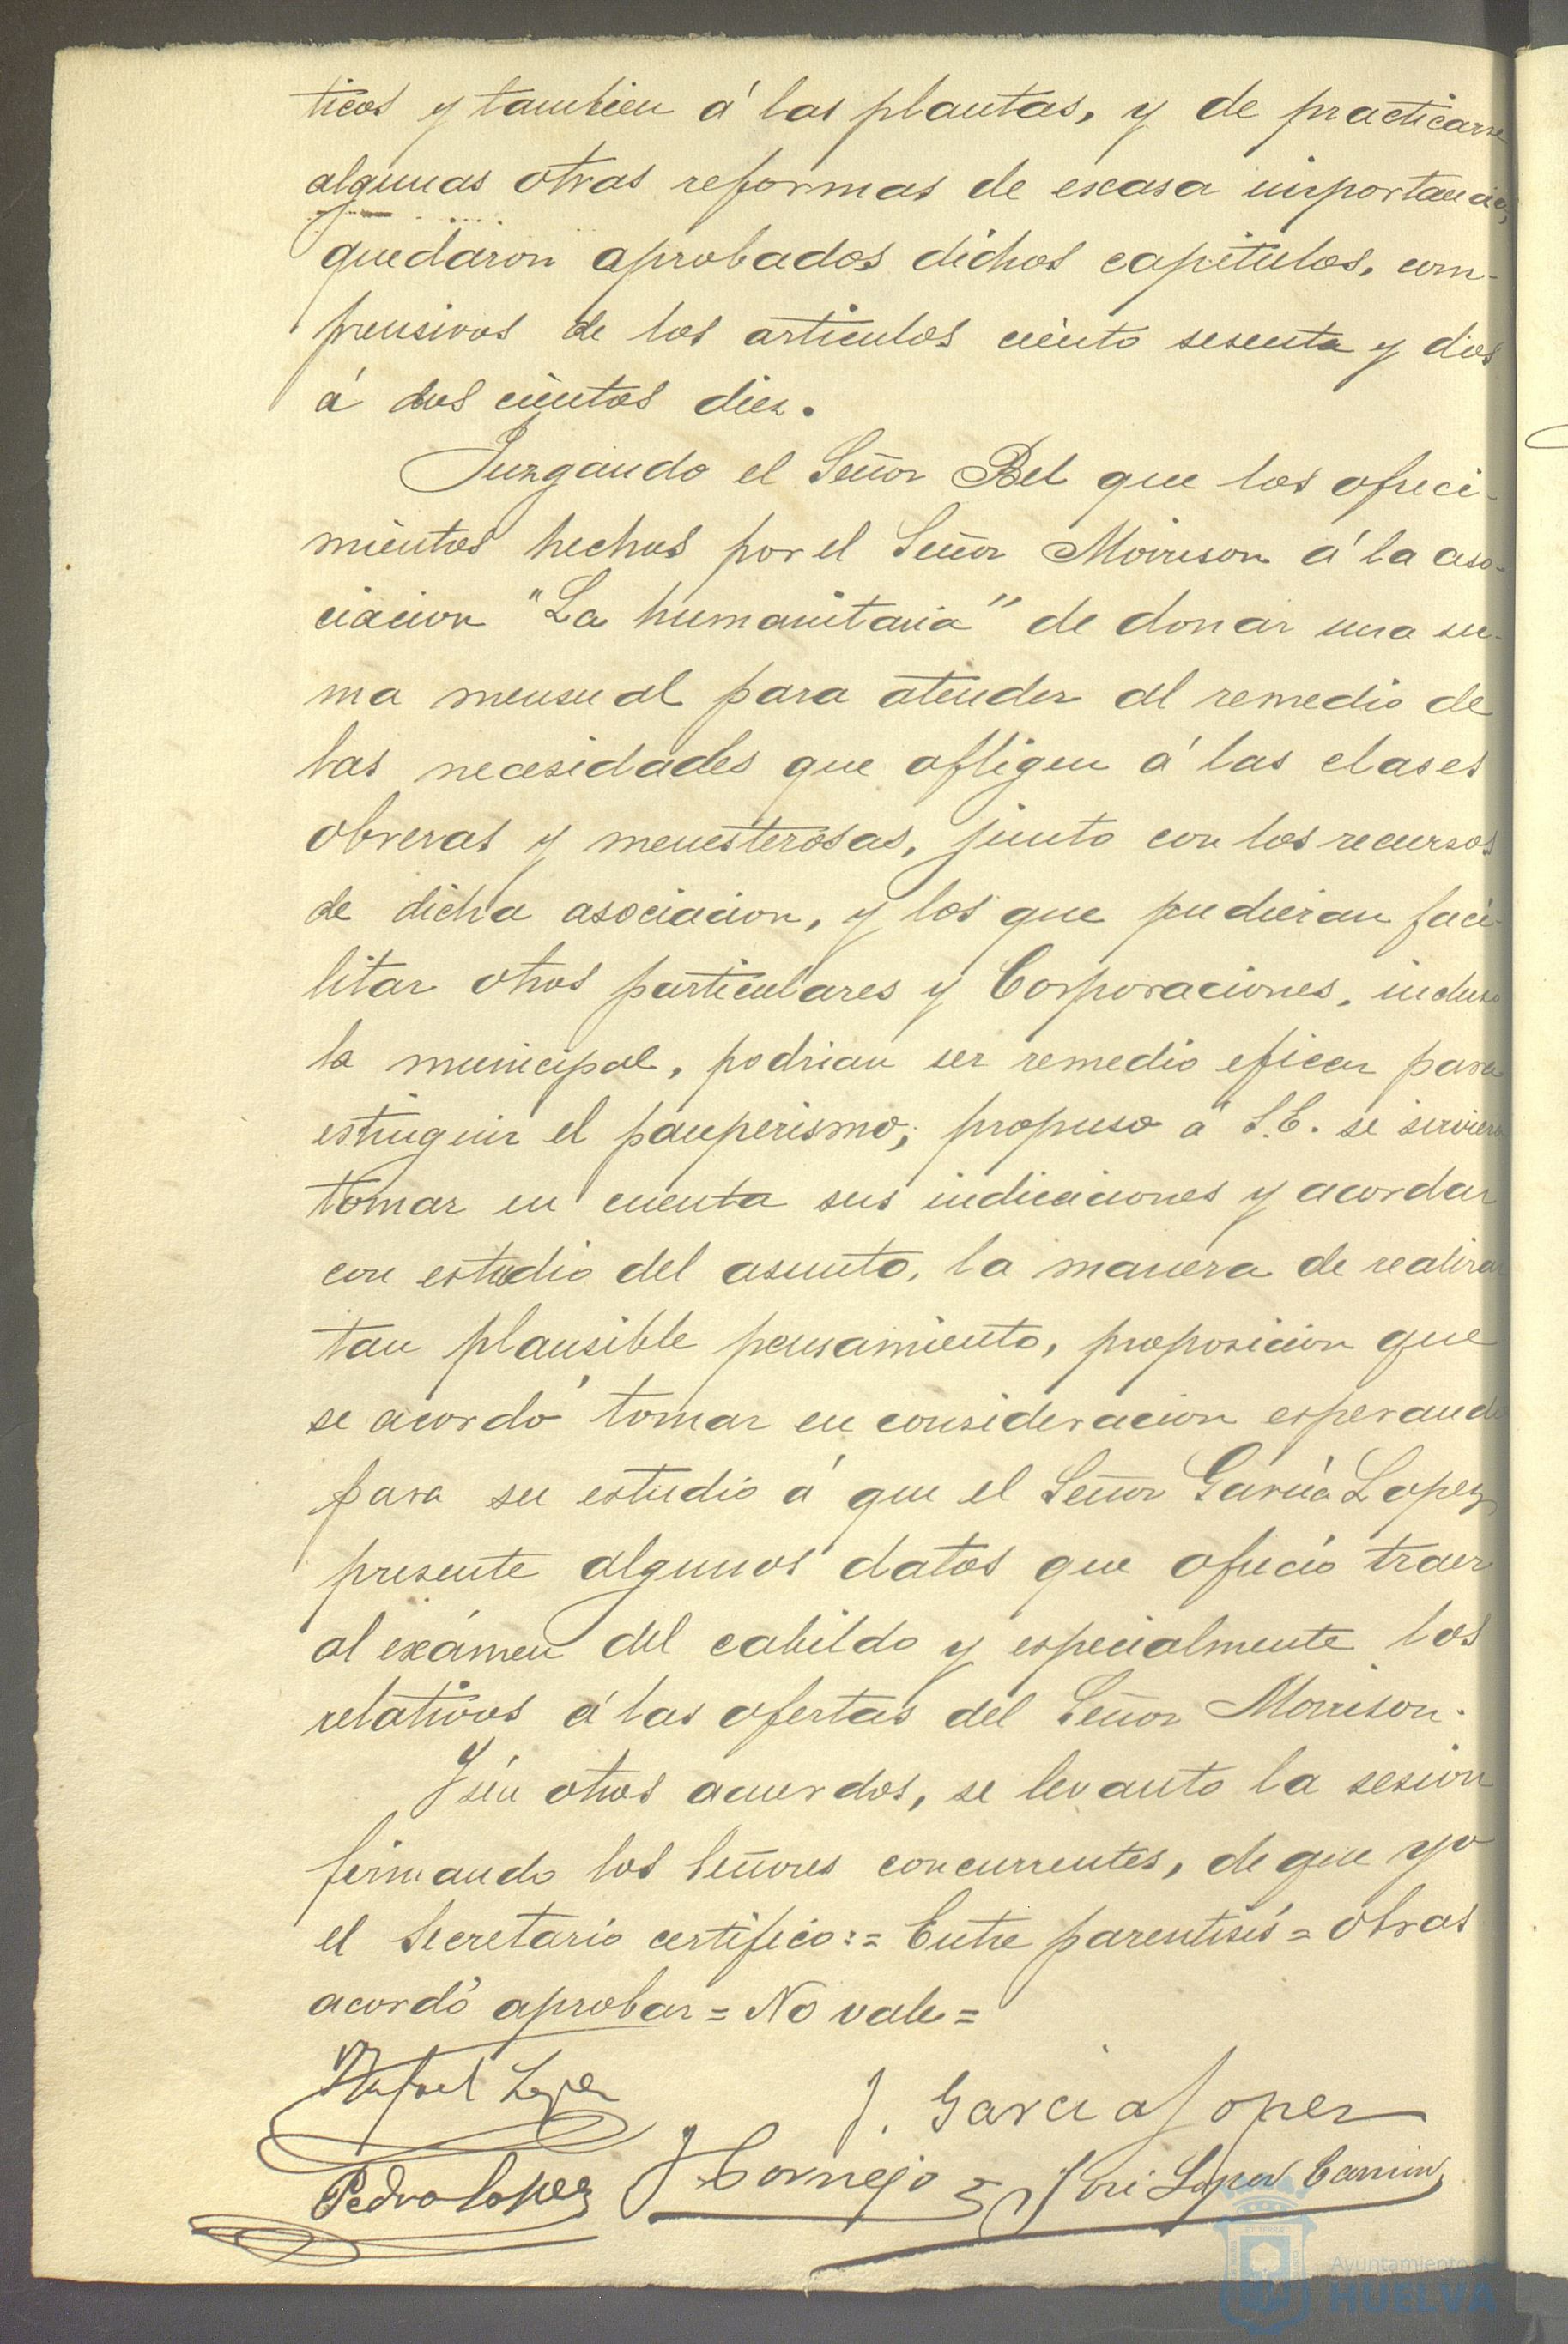 ticos y tambien á las plantas, y de practicarse
algunas otras reformas de escasa importancia,
quedaron aprobados dichos capitulos, com-
prensivos de los articulos ciento sesenta y dos
á dos cientos diez.
Juzgando el Señor Bel que los ofreci-
mientos hechos por el Señor Morrison á la aso-
ciacion "La humanitaria" de donar una su-
ma mensual para atender al remedio de
las necesidades que afligen á las clases
obreras y menesterosas, junto con los recursos
de dicha asociacion, y los que pudieran faci-
litar otros particulares y Corporaciones, incluso
la municipal, podrian ser remedio eficaz para
estinguir el pauperismo; propuso á S.E. se sirviera
tomar en cuenta sus indicaciones y acordar
con estudio del asunto, la manera de realizar
tan plausible pensamiento, proposicion que
se acordó tomar en consideracion esperando
para su estudio á que el Señor García Lopez
presente algunos datos que ofreció traer
al exámen del cabildo y especialmente los
relativos á las ofertas del Señor Morrison.
Y sin otros acuerdos, se levanto la sesion
firmando los Señores concurrentes, de que yo
el Secretario certifico:= Entre parentisis = otras
acordó aprobar = No vale =
Rafael Lopez
J. Garcia Lopez
Pedro Lopez J Cornejo José Lopez
Ayuntamiento
HUELVA